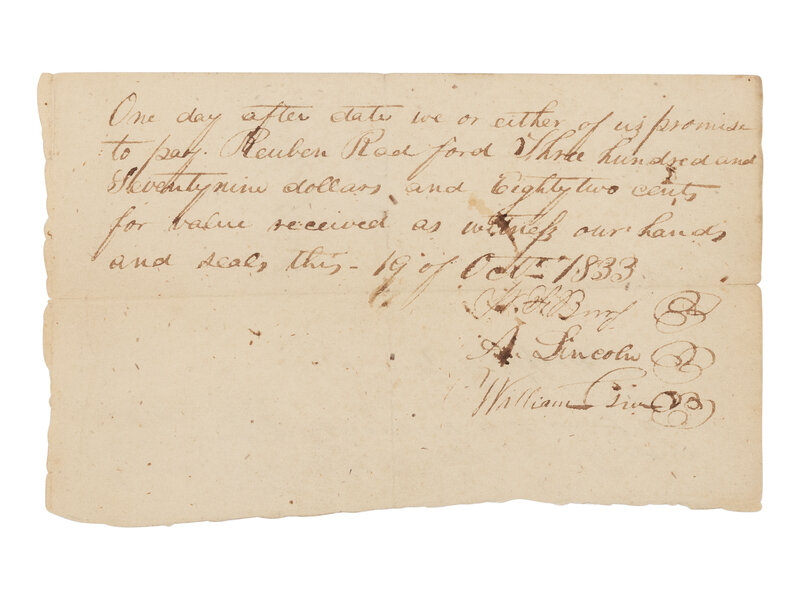 One day after date we or either of us promise
to pay Reuben Rad ford Three hundred and
Seventynine dollars and Eightytwo cents
for value received as witness our hands
and seals this - 19 of Octr 1833
A. Lincoln
William